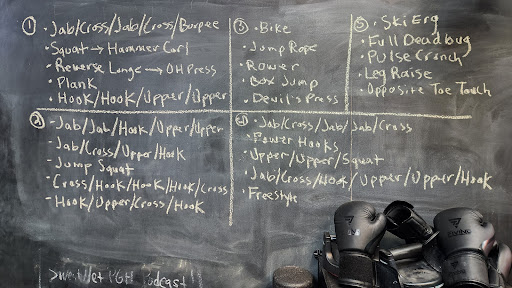 ① • Jab/Cross/Jab/Cross/Burpee
• Squat → Hammer Curl
• Reverse Lunge → OH Press
• Plank
• Hook/Hook/Upper/Upper
② - Jab/Jab/Hook/Upper/Upper
- Jab/Cross/Upper/Hook
- Jump Squat
- Cross/Hook/Hook/Hook/Cross
- Hook/Upper/Cross/Hook
③ • Bike
• Jump Rope
• Rower
• Box Jump
• Devil's Press
④ • Jab/Cross/Jab/Jab/Cross
• Power Hooks
• Upper/Upper/Squat
• Jab/Cross/Hook/Upper/Upper/Hook
• Freestyle
⑤ • Ski Erg
• Full Deadbug
• Pulse Crunch
• Leg Raise
• Opposite Toe Touch
PGH Podcast!